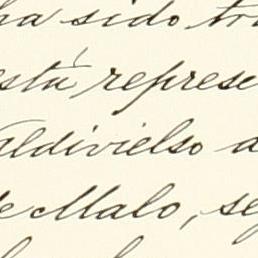 ha sido tra
está represe
aldivielso a
de Malo, se